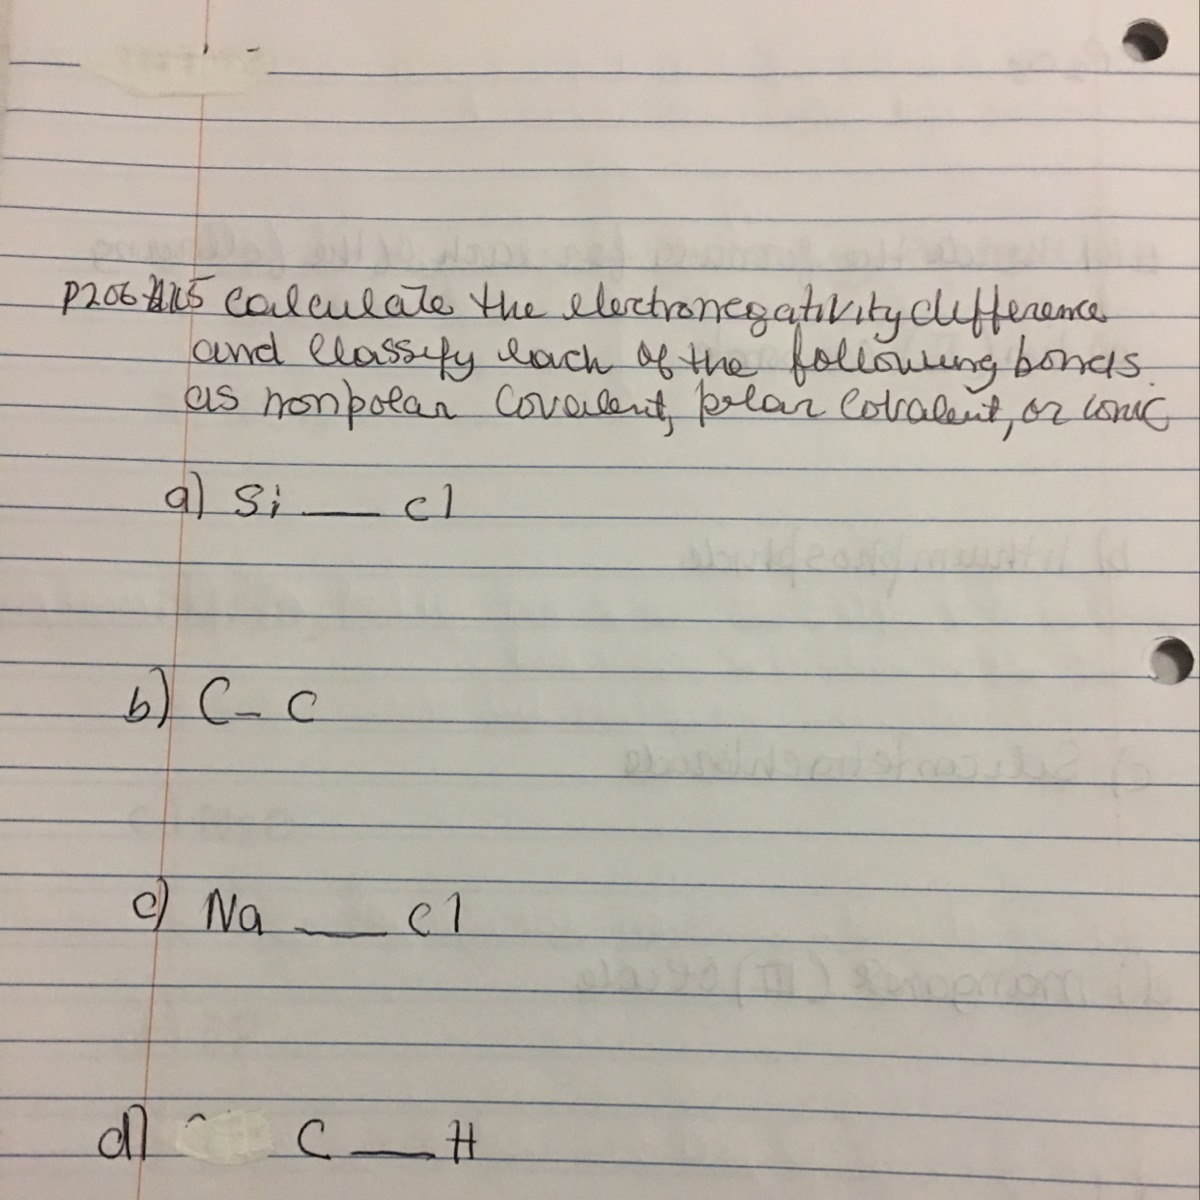 P206 115 calculate the electronegativity difference
and classify each of the following bonds.
as nonpolar covalent, polar covalent, or ionic
a) Si — cl
b) C - C
c) Na — cl
d) C — H